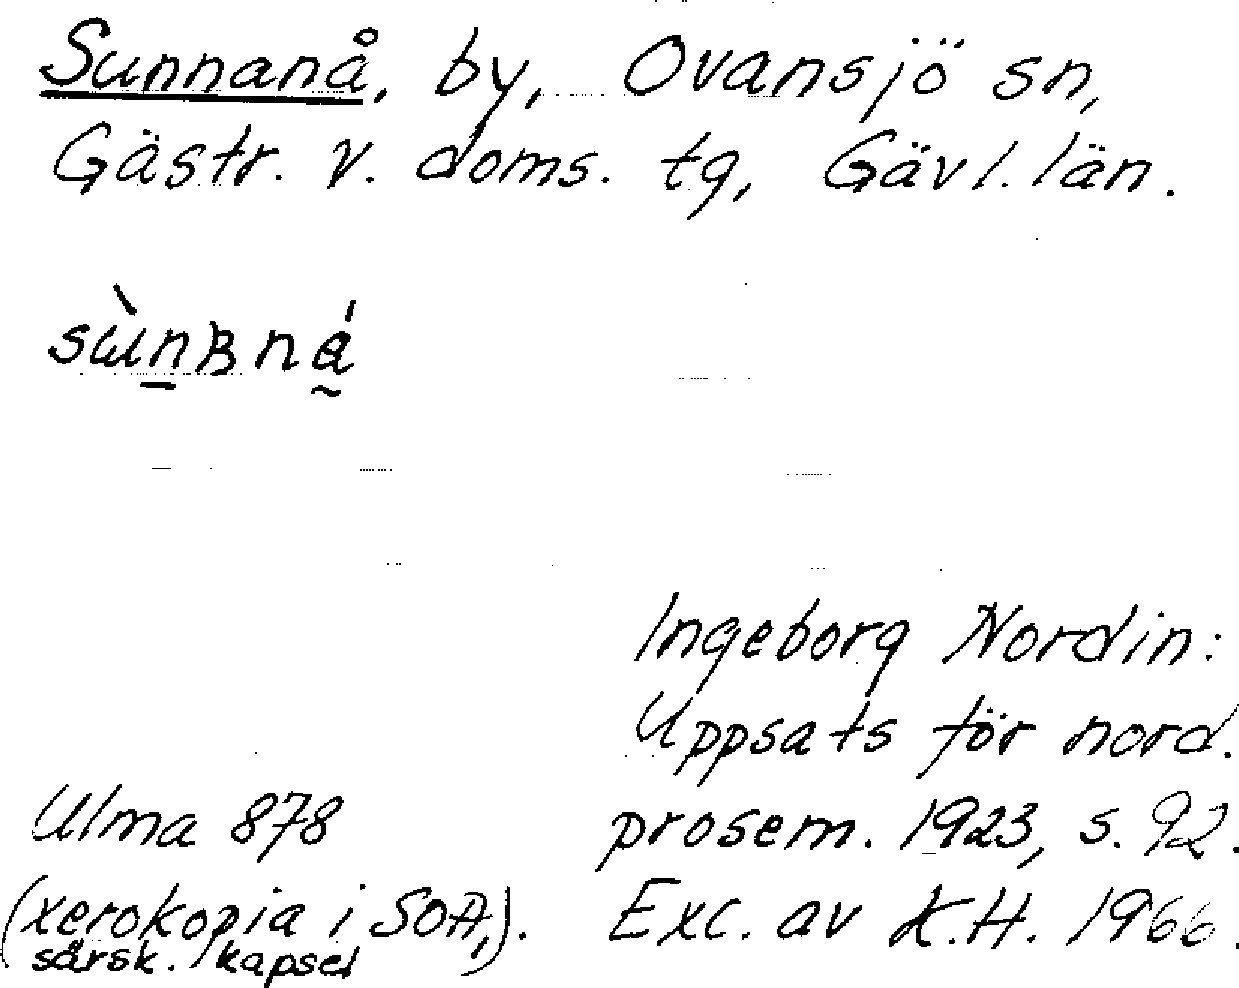 Sunnanå, by, Ovansjö sn,
Gästr. v. doms. tg, Gävl. län.
Ingeborg Nordin:
Uppsats för nord.
Ulma 878 prosem. 1923, s. 92.
(xerokopia i SOA,). Exc. av K.H. 1966.
särsk. kapsel